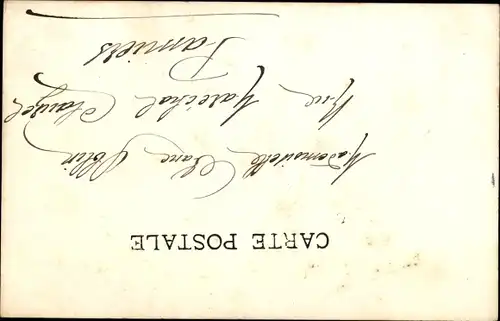 CARTE POSTALE
Mademoiselle Claire Polin
Rue Maréchal Clauzel
Pamiers